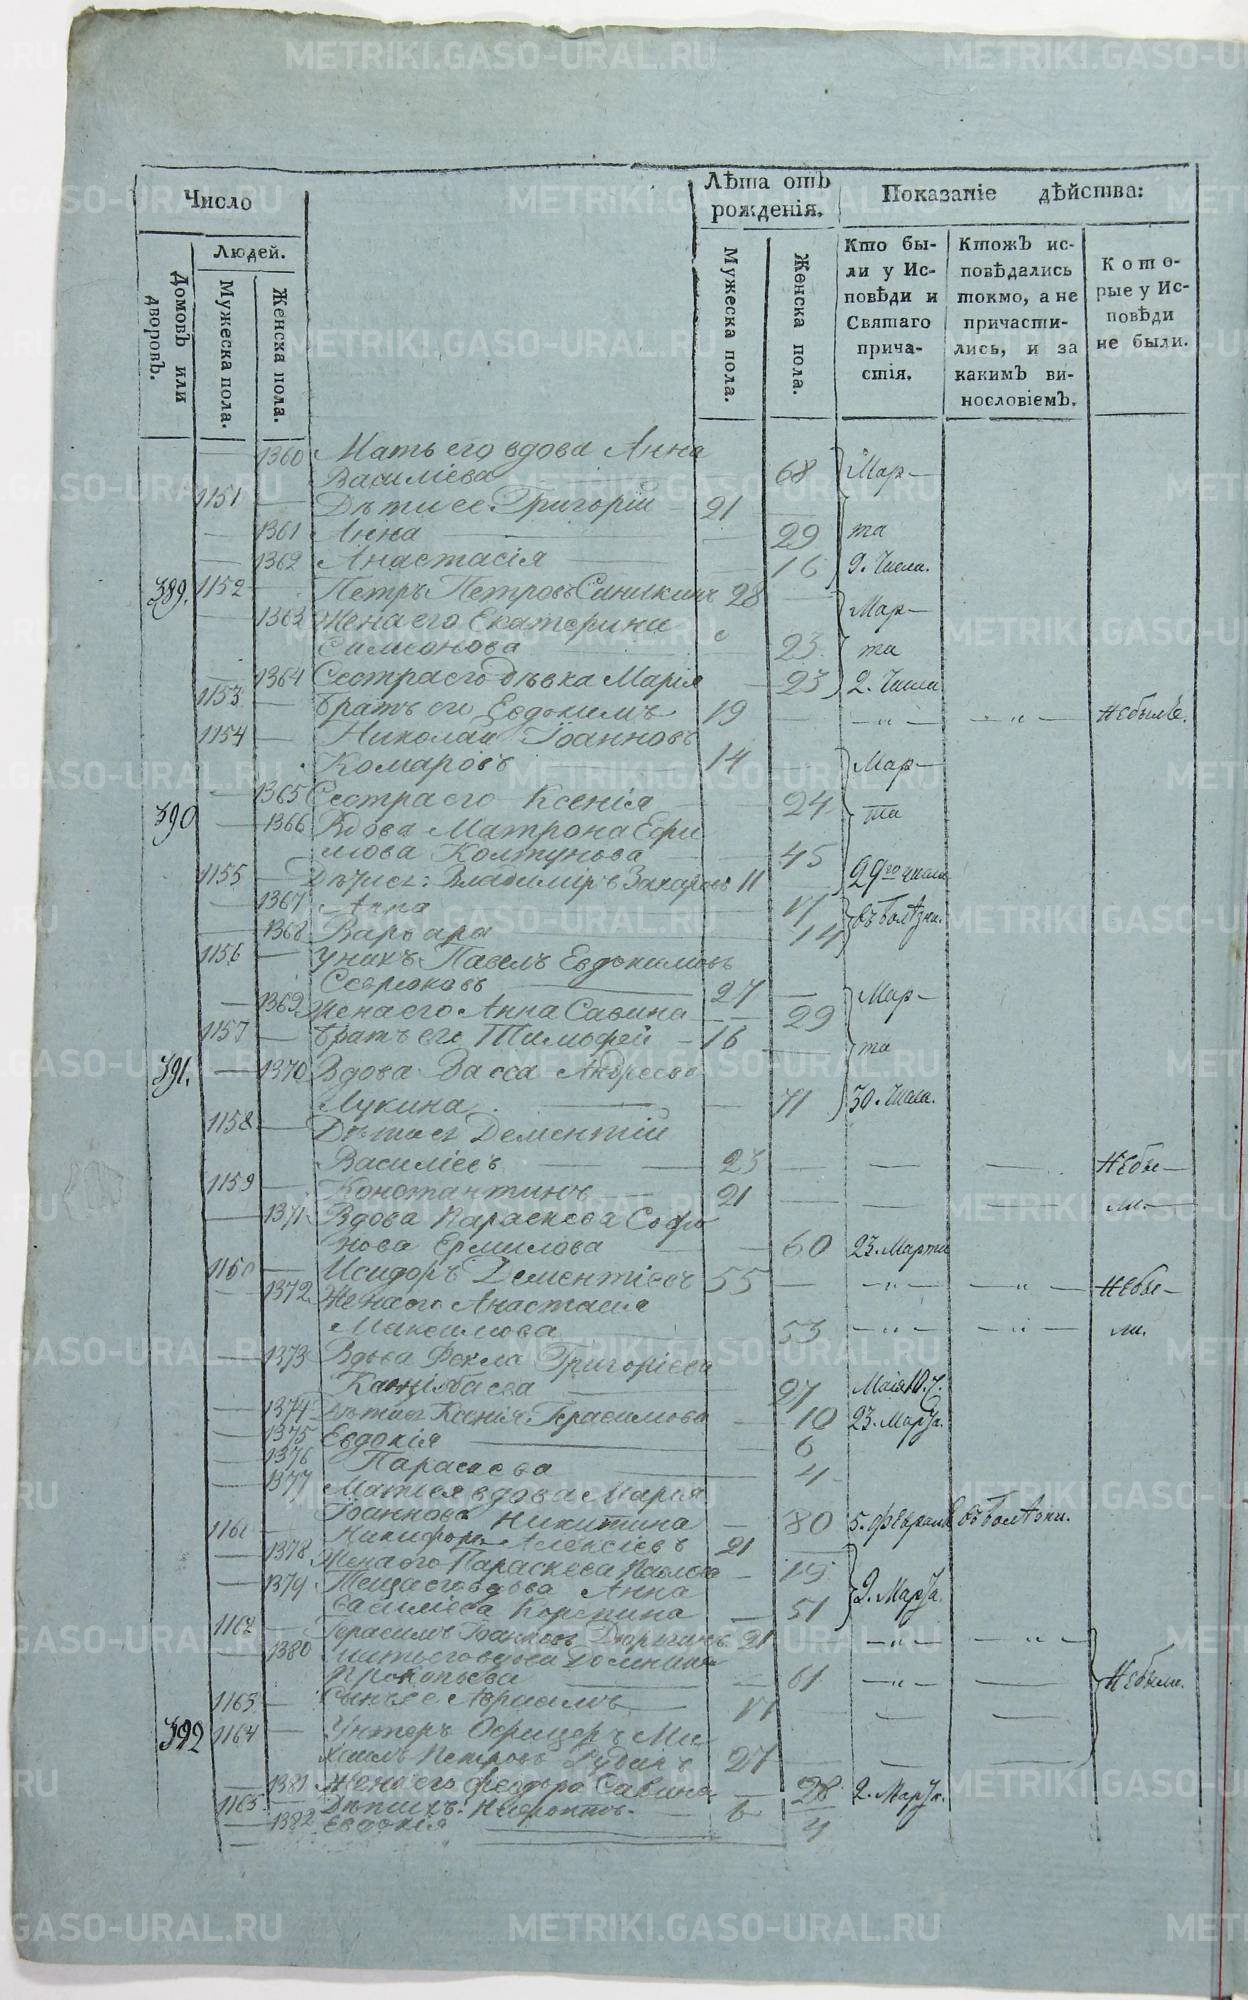 Число
Людей.
Домовъ или дворовъ.
Мужеска пола.
Женска пола.
Лѣта отъ рожденія.
Мужеска пола.
Женска пола.
Показаніе дѣйства:
Кто бы-
ли у Ис-
повѣди и
Святаго
прича-
стія.
Ктожъ ис-
повѣдались
токмо, а не
причасти-
лись, и за
какимъ ви-
нословіемъ.
Кото-
рые у Ис-
повѣди
не были.
1360 Мать его вдова Анна
Василіева 68 Мар-
1151 Дѣти ее: Григорій 21
1361 Анна 29 та
1362 Анастасія 16 9. Числа.
389. 1152 Петръ Петровъ 28
1363 Жена его Екатерина Мар-
Симеонова 23 та
1364 Сестра его дѣвка Марія 23 2. Числа
1153 Братъ его Евдокимъ 19 — „ — — „ — Небылъ.
1154 Николай Іоанновъ
Комаровъ 14 Мар-
1365 Сестра его Ксенія 24 та
390 1366 Вдова Матрона Ефи
мова Колтунова 45
1155 Дѣти ее: Владиміръ Захаровъ 11 29го числа
1367 Анна 17
1368 Варвара 14 въ болѣзни.
1156 Павелъ Евдокимовъ
27 Мар-
1369 Жена его Анна Савина 29
1157 Братъ его Тимофей 16 та
391. 1370 Вдова Васса Андреева
Лукина 71 30. Числа.
1158 Дѣти ея Дементій
Василіевъ 23 Небы-
1159 Константинъ 21 ли.
1371 Вдова Параскева Софо
нова Ермилова 60 23. Марта
1160 Исидоръ Дементіевъ 55 — „ — — „ — Небы-
1372 Жена его Анастасія
Максимова 53 — „ — — „ — ли.
1373 Вдова Фекла Григоріева
27 Маія 10. ч.
1374 Дѣти ея Ксенія Герасимова 10 23. Марта.
1375 Евдокія 6
1376 Параскева 4
1377 Мать ея вдова Марія
Іоаннова Никитина 80 5. февраля въ болѣзни.
1161 Никифоръ Алексіевъ 21
1378 Жена его Параскева Павлова 19
1379 Теща его вдова Анна 9. Марта.
Василіева Корепина 51
1162 Герасимъ Іоанновъ 21 — „ — — „ —
1380 Мать его вдова Домника
Прокопьева 61 — „ — Небыли.
1163 Сынъ ее Авраамъ 17
392 1164 Унтеръ Офицеръ Ми
хаилъ Петровъ 27
1381 Жена его Феодора Савина 28 2. Марта.
1165 Дѣти ихъ: 6
1382 Евдокія 4